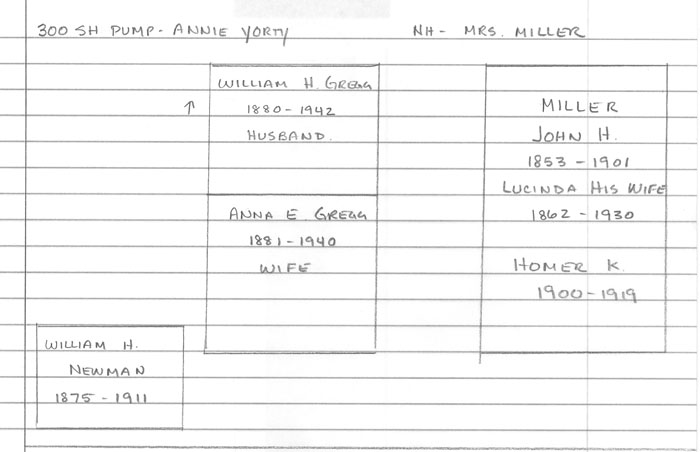 300 SH PUMP - ANNIE YORTY
NH - MRS. MILLER
WILLIAM H. GREGG
1880 - 1942
HUSBAND.
↑
ANNA E GREGG
1881 - 1940
WIFE
MILLER
JOHN H.
1853 - 1901
LUCINDA HIS WIFE
1862 - 1930
HOMER K.
1900 - 1919
WILLIAM H.
NEWMAN
1875 - 1911